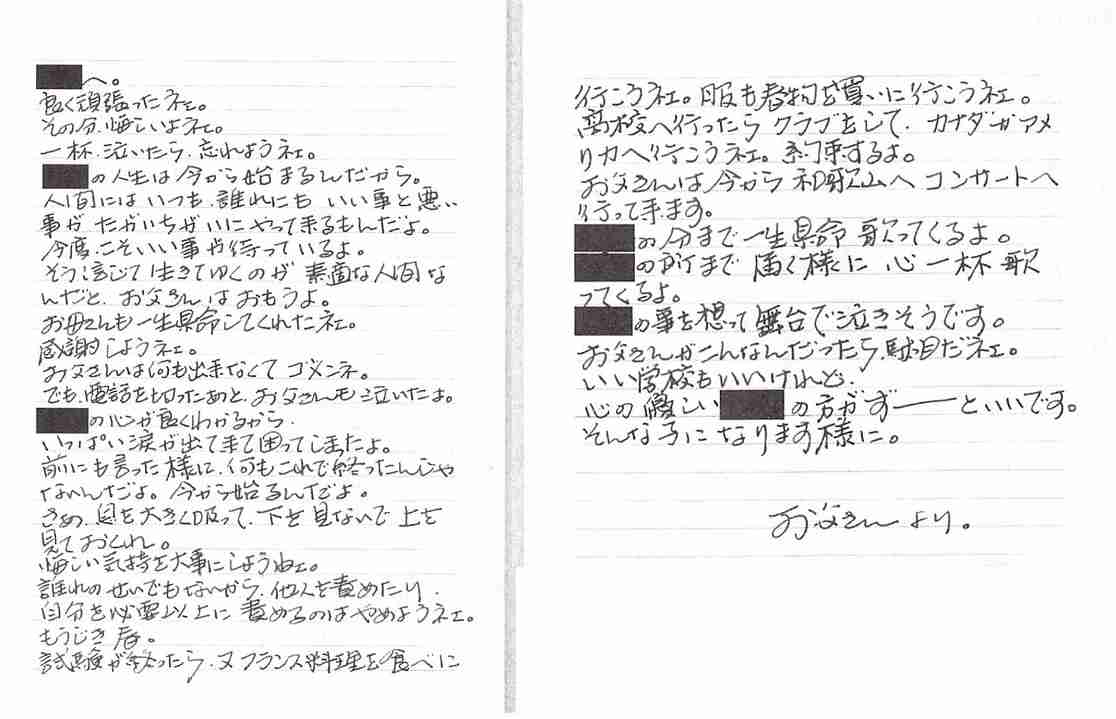 へ。
良く頑張ったネェ。
その分、悔しいよネェ。
一杯、泣いたら、忘れようネェ。
の人生は今から始まるんだから。
人間にはいつも、誰れにも いい事と悪い
事が たがいちがいにやって来るもんだよ。
今度こそいい事が待っているよ。
そう信じて生きてゆくのが 素適な人間な
んだと、お父さんはおもうよ。
お母さんも一生県命してくれたネェ。
感謝しようネェ。
お父さんは何も出来なくて ゴメンネ。
でも、電話を切ったあと、お父さんも泣いたよ。
の心が良くわかるから、
いっぱい涙が出て来て困ってしまったよ。
前にも言った様に、何もこれで終ったんじゃ
ないんだよ。今から始るんだよ。
さぁ、息を大きく吸って、下を見ないで上を
見ておくれ。
悔しい気持を大事にしようねェ。
誰れのせいでもないから、他人を責めたり、
自分を必要以上に責めるのはやめようネェ。
もうじき春。
試験が終ったら、又フランス料理を食べに
行こうネェ。服も春物を買いに行こうネェ。
高校へ行ったら クラブをして、カナダかアメ
リカへ行こうネェ。約束するよ。
お父さんは今から 和歌山へ コンサートへ
行って来ます。
の分まで一生県命 歌ってくるよ。
の所まで 届く様に 心一杯 歌
ってくるよ。
の事を想って 舞台で泣きそうです。
お父さんがこんなんだったら、駄目だネェ。
いい学校もいいけれど、
心の優しい の方がずーーーといいです。
そんな子になります様に。
お父さんより。